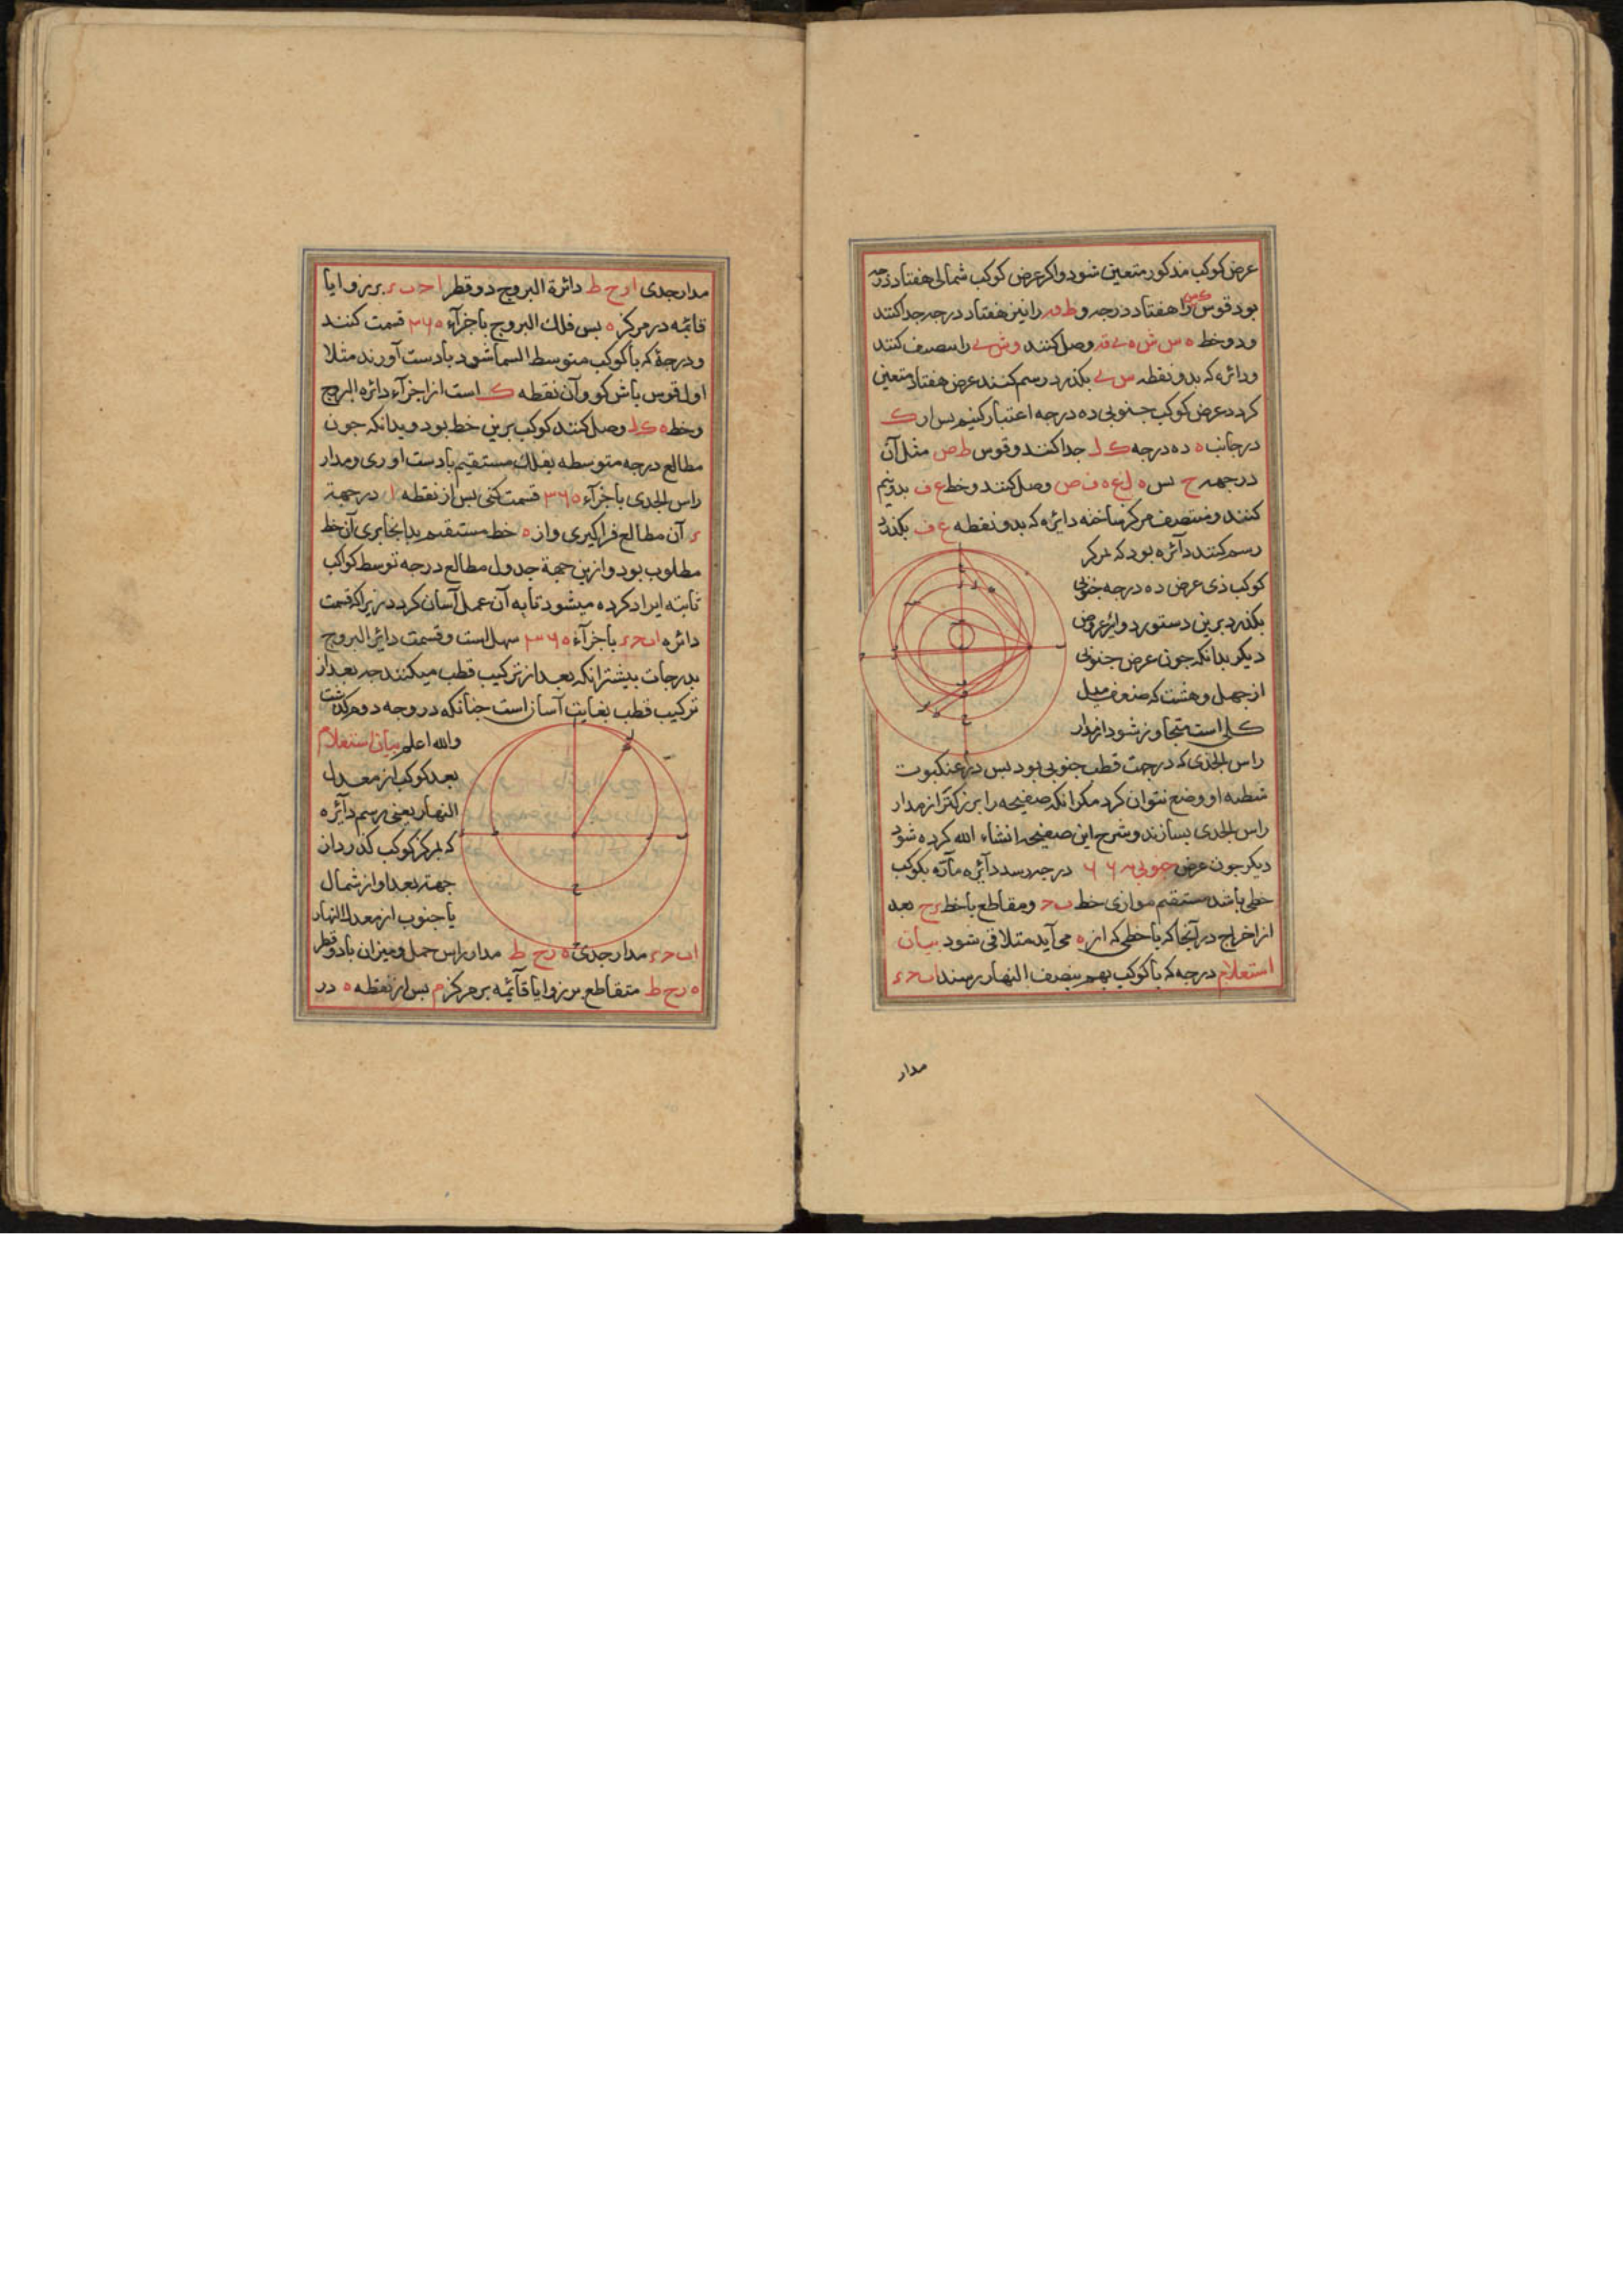 عرض کوکب مذکور متعین شود واکر عرض کوکب شمالی هفتاد درجه
بود قوس را هفتاد درجه و را نیز هفتاد درجه جدا کنند
ودو خط ه س ش ه وصل کنند و را تنصیف کنند
ودائره که بدو نقطه بکذرد رسم کنند عرض هفتاد متعین
کردد عرض کوکب جنوبی ده درجه اعتبار کنیم بس از ک
در جانب ه ده درجه ک ل جدا کنند وقوس ط ص مثل آن
در جهه ح بس ه ل ع ه ف ص وصل کنند وخط ع ف بدونیم
کنند ومنتصف مرکز ساخته دایره که بدو نقطه ع ف بکذرد
رسم کنند دآئره بود که بمرکز
کوکب ذی عرض ده درجه جنوبی
بکذرد برین دستور دوایر عروض
دیکر بدانکه جون عرض جنوبی
از جهل وهشت که ضعف میل
کلی است متجاوز شود از مدار
راس الجدی که در جهت قطب جنوبی بود بس در عنکبوت
شظیه او وضع نتوان کرد مکر انکه صفیحه را بزرکتر از مدار
راس الجدی بسازند وشرح این صفیحه انشاء الله کرده شود
دیکر جون عرض جنوبی ۶۶ درجه رسد دآئره مآره بکوکب
خطی باشد مستقیم موازی خط ب ح ومقاطع با خط بعد
از اخراج در آنجا که با خطی که از ه می آید متلاقی شود بیان
استعلام درجه که با کوکب بهم بنصف النهار رسند ا ب ح ء
مدار
مدار جدی ا ر ح ط دائرة البروج دو قطر ا ح ب ء بر زوایا
قائمه در مرکز ه بس فلك البروج باجزآء ۳۶۵ قسمت کنند
ودرجهٔ که با کوکب متوسط السما شود بادست آورند مثلا
اول قوس باش کو وآن نقطه ک است از اجزآء دائره البروج
وخط ه ک ل وصل کنند کوکب برین خط بود وبدانکه جون
مطالع درجه متوسطه بفلك مستقیم بادست اوری ومدار
راس الجدی باجزآء ۳۶۵ قسمت کنی بس از نقطه ا در جهة
ء آن مطالع فراکیری واز ه خط مستقیم بدانجا بری آن خط
مطلوب بود وازین جهة جدول مطالع درجه توسط کواکب
ثابته ایراد کرده میشود تا به آن عمل آسان کردد زیرا که قسمت
دائره ا ب ح ء باجزآء ۳۶۵ سهل است وقسمت دائر البروج
بدرجات بیشتر انکه بعد از ترکیب قطب میکنند جه بعد از
ترکیب قطب بغایت آسان است جنانکه در وجه دوم کذشت
والله اعلم بیان استعلام
بعد کوکب از معدل
النهار یعنی رسم دآئره
که بمرکز کوکب کذرد از
جهة بعد او از شمال
یا جنوب از معدل النهار
ا ب ح ء مدار جدی ه ر ح ط مدار راس حمل ومیزان با دو قطر
ه ر ح ط متقاطع بر زوایا قآئمه بر مرکز م بس از نقطه ه در